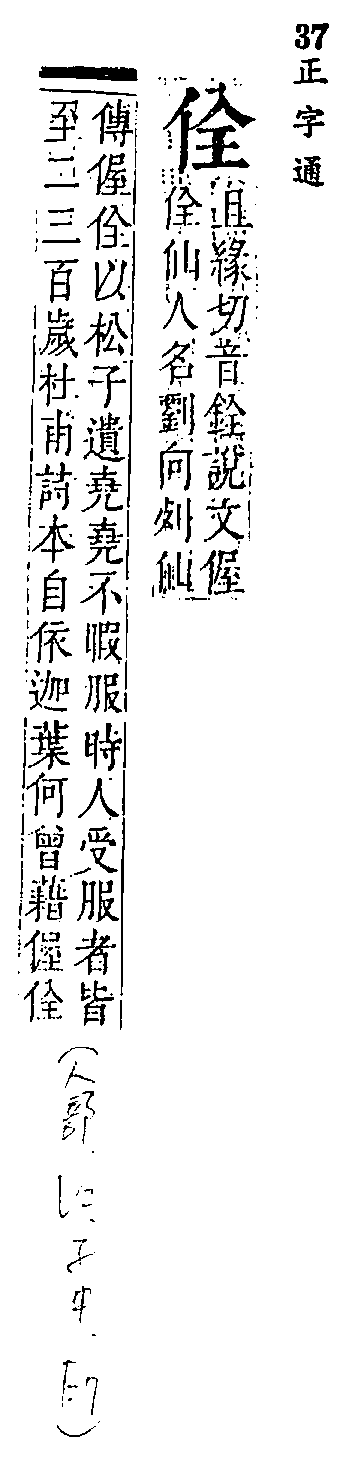 37正字通
佺
且緣切音銓說文偓
佺仙人名劉向列仙
傳偓佺以松子遺堯堯不暇服時人受服者皆
至二三百歲杜甫詩本自依迦葉何曾藉偓佺
(人部.